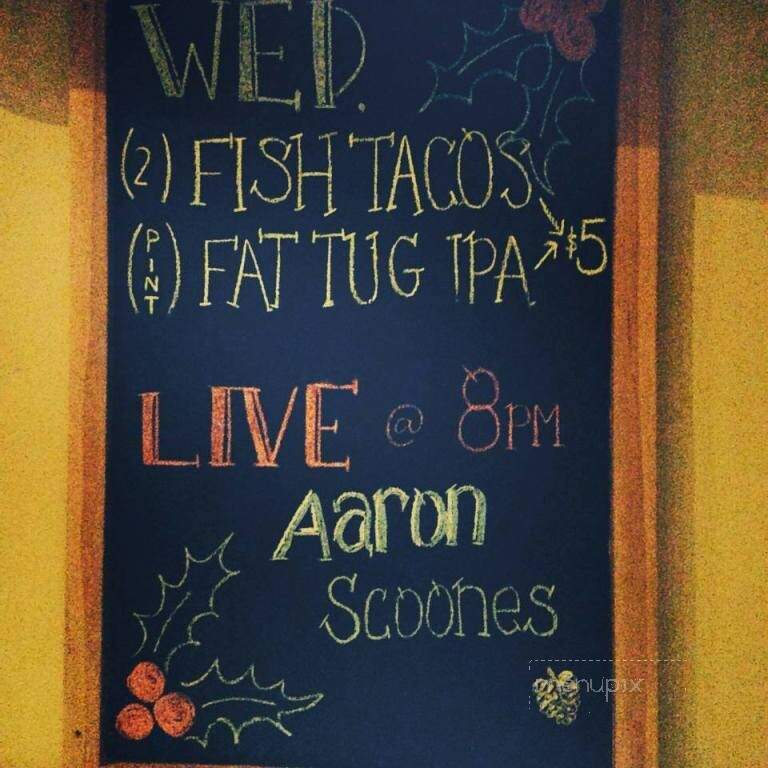 WED.
(2) FISH TACOS
(PINT) FAT TUG IPA $5
LIVE @ 8PM
Aaron
Scoones
menupix